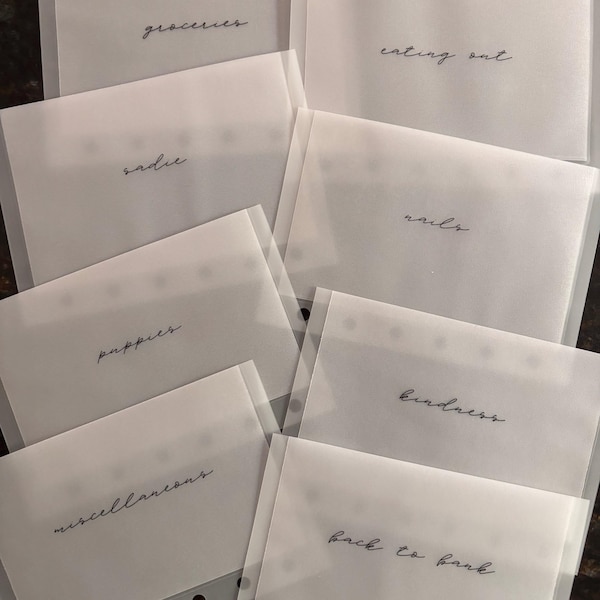 groceries
eating out
sadie
nails
puppies
kindness
miscellaneous
back to bank